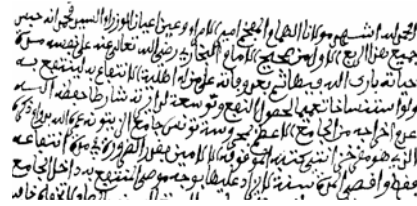 الحمد لله اشهد مولانا الهمام المفخم امير الامراء وعين اعيان الوزراء السيد خير الله حبس
جميع هذا الربع الاول من صحيح الامام البخاري رضي الله تعالى عنه على نفسه مدة
حياته بارك الله فيها ثم على من له اهلية الانتفاع به لينتفع به
ولو استنساخا تعميما لحصول النفع وتوسعة لدائرته شارطا حفظه الله
عدم اخراجه من الجامع الاعظم بمحروسة تونس جامع الزيتونة عمره الله بدوام ذكره
الذي هو مقر خزائن كتبه الموقوفة الا لامين بقدر الضرورة في مدة انتفاعه
فقط واقصى المدة سنة لا يزاد عليها بوجه ومن انتفع به داخل الجامع